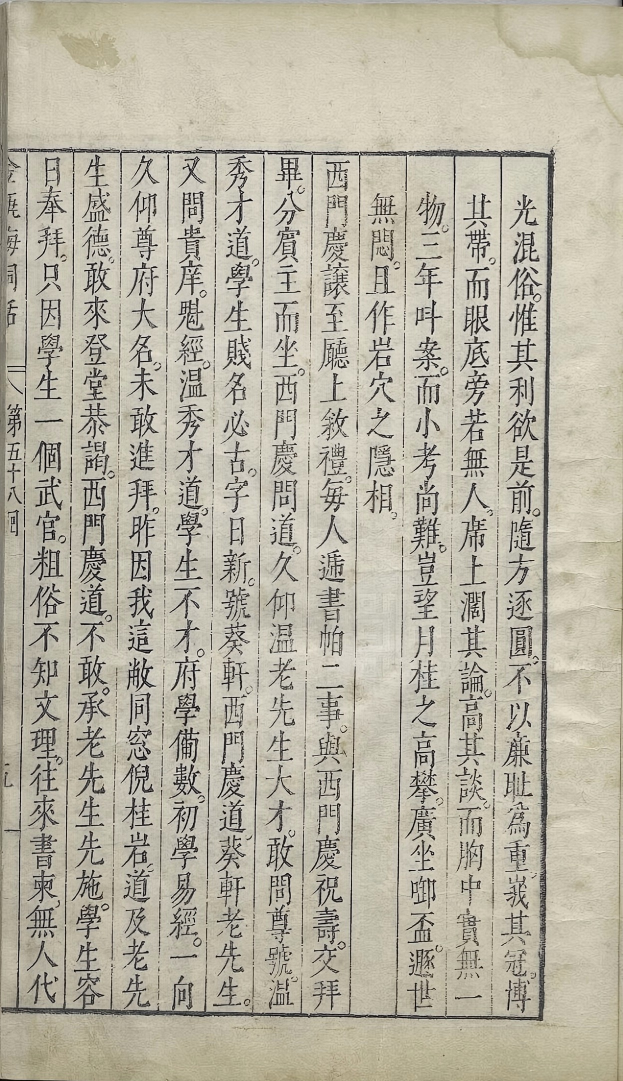 光混俗。惟其利欲是前。隨方逐圓。不以廉耻為重。峩其冠。博
其帶。而眼底旁若無人。席上濶其論。高其談。而胸中實無一
物。三年呌案。而小考尚難。豈望月桂之高攀。廣坐啣盃。遯世
無悶。且作岩穴之隱相。
西門慶讓至廳上敘禮。每人遞書帕二事。與西門慶祝壽。交拜
畢。分賓主而坐。西門慶問道。久仰温老先生大才。敢問尊號。温
秀才道。學生賤名必古。字日新。號葵軒。西門慶道葵軒老先生。
又問貴庠。魁經。温秀才道。學生不才。府學備數。初學易經。一向
久仰尊府大名。未敢進拜。昨因我這敝同窓倪桂岩。道及老先
生盛德。敢來登堂恭謁。西門慶道。不敢。承老先生先施。學生容
日奉拜。只因學生一個武官。粗俗不知文理。往來書柬。無人代
金瓶梅詞話 第五十八回 九